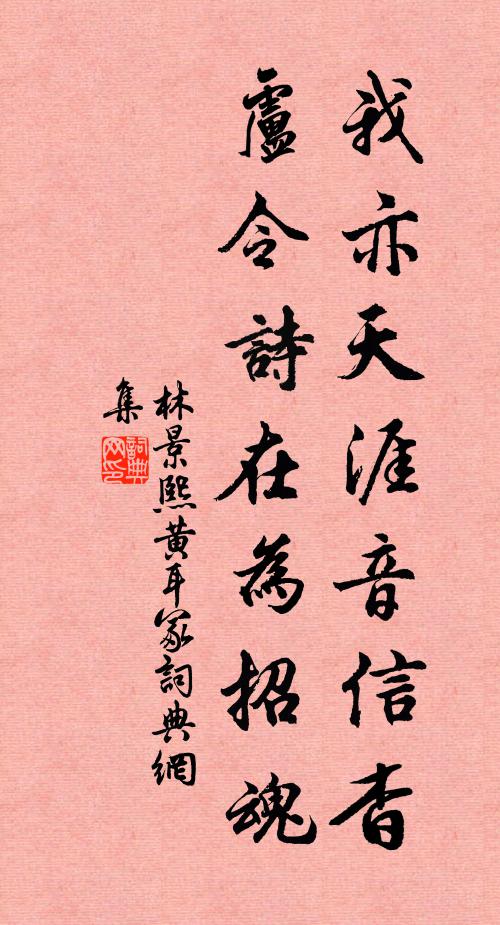 我亦天涯音信杳
盧令詩在為招魂
林景熙黃耳冢詞典網
集
詞典
网印